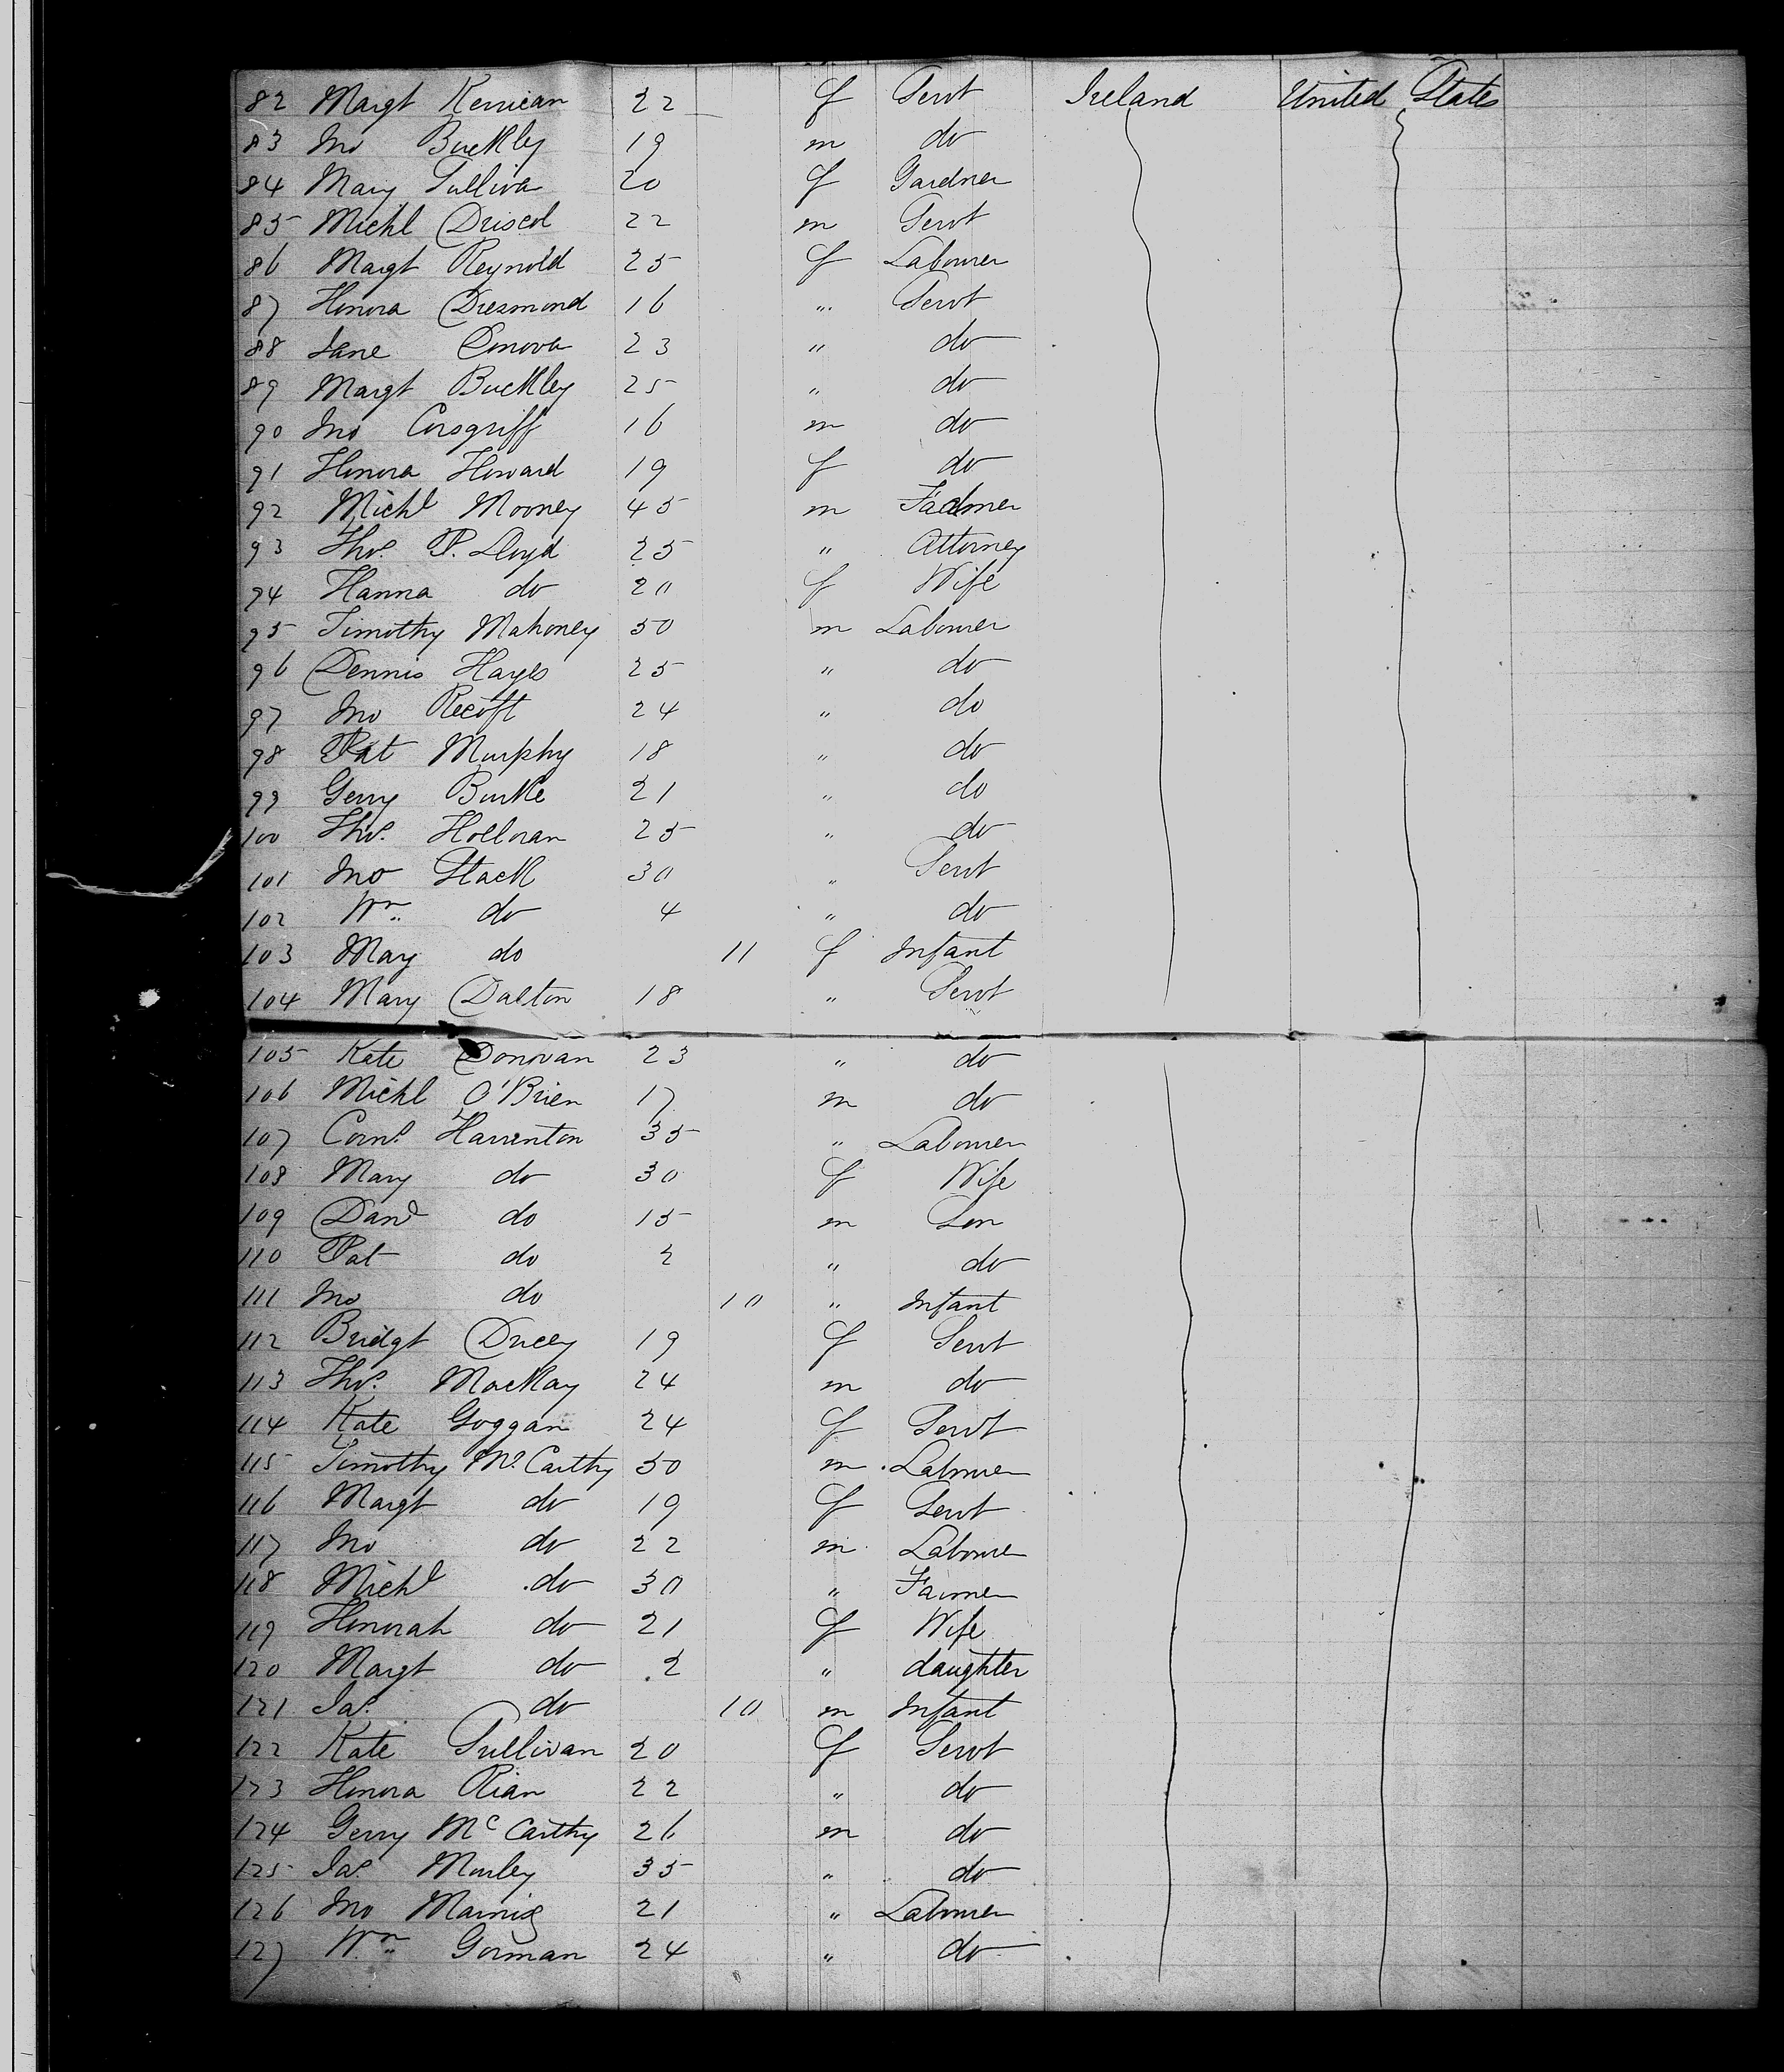 82 Margt Kerrican 22 f Servt Ireland United States
83 Jno Buckley 19 m do
84 Mary Sulliva 20 f Gardner
85 Michl Driscol 22 m Servt
86 Margt Reynold 25 f Labourer
87 Honora Desmond 16 " Servt
88 Jane Conova 23 " do
89 Margt Buckley 25 " do
90 Jno Cosgriff 16 m do
91 Honora Howard 19 f do
92 Michl Mooney 45 m Farmer
93 Thos. P. Lloyd 25 " Attorney
94 Hanna do 20 f Wife
95 Timothy Mahoney 50 m Labourer
96 Dennis Hayes 25 " do
97 Jno 24 " do
98 Pat Murphy 18 " do
99 Gerry Burke 21 " do
100 Thos. Holloran 25 " do
101 Jno Stack 30 " Servt
102 Wm do 4 " do
103 May do 11 f Infant
104 Mary Dalton 18 " Servt
105 Kate Donovan 23 " do
106 Michl O'Brien 17 m do
107 Corns. Harrinton 35 " Labourer
108 Mary do 30 f Wife
109 Danl do 15 m Son
110 Pat do 2 " do
111 Jno do 10 " Infant
112 Bridgt Ducey 19 f Servt
113 Thos. MacKay 24 m do
114 Kate Goggan 24 f Servt
115 Timothy Mc Carthy 50 m Labourer
116 Margt do 19 f Servt
117 Jno do 22 m Labourer
118 Michl do 30 " Farmer
119 Honorah do 21 f Wife
120 Margt do 2 " daughter
121 Jas. do 10 m Infant
122 Kate Sullivan 20 f Servt
123 Honora Rian 22 " do
124 Gerry Mc Carthy 26 m do
125 Jas. Morley 35 " do
126 Jno 21 " Labourer
127 Wm Gorman 24 " do